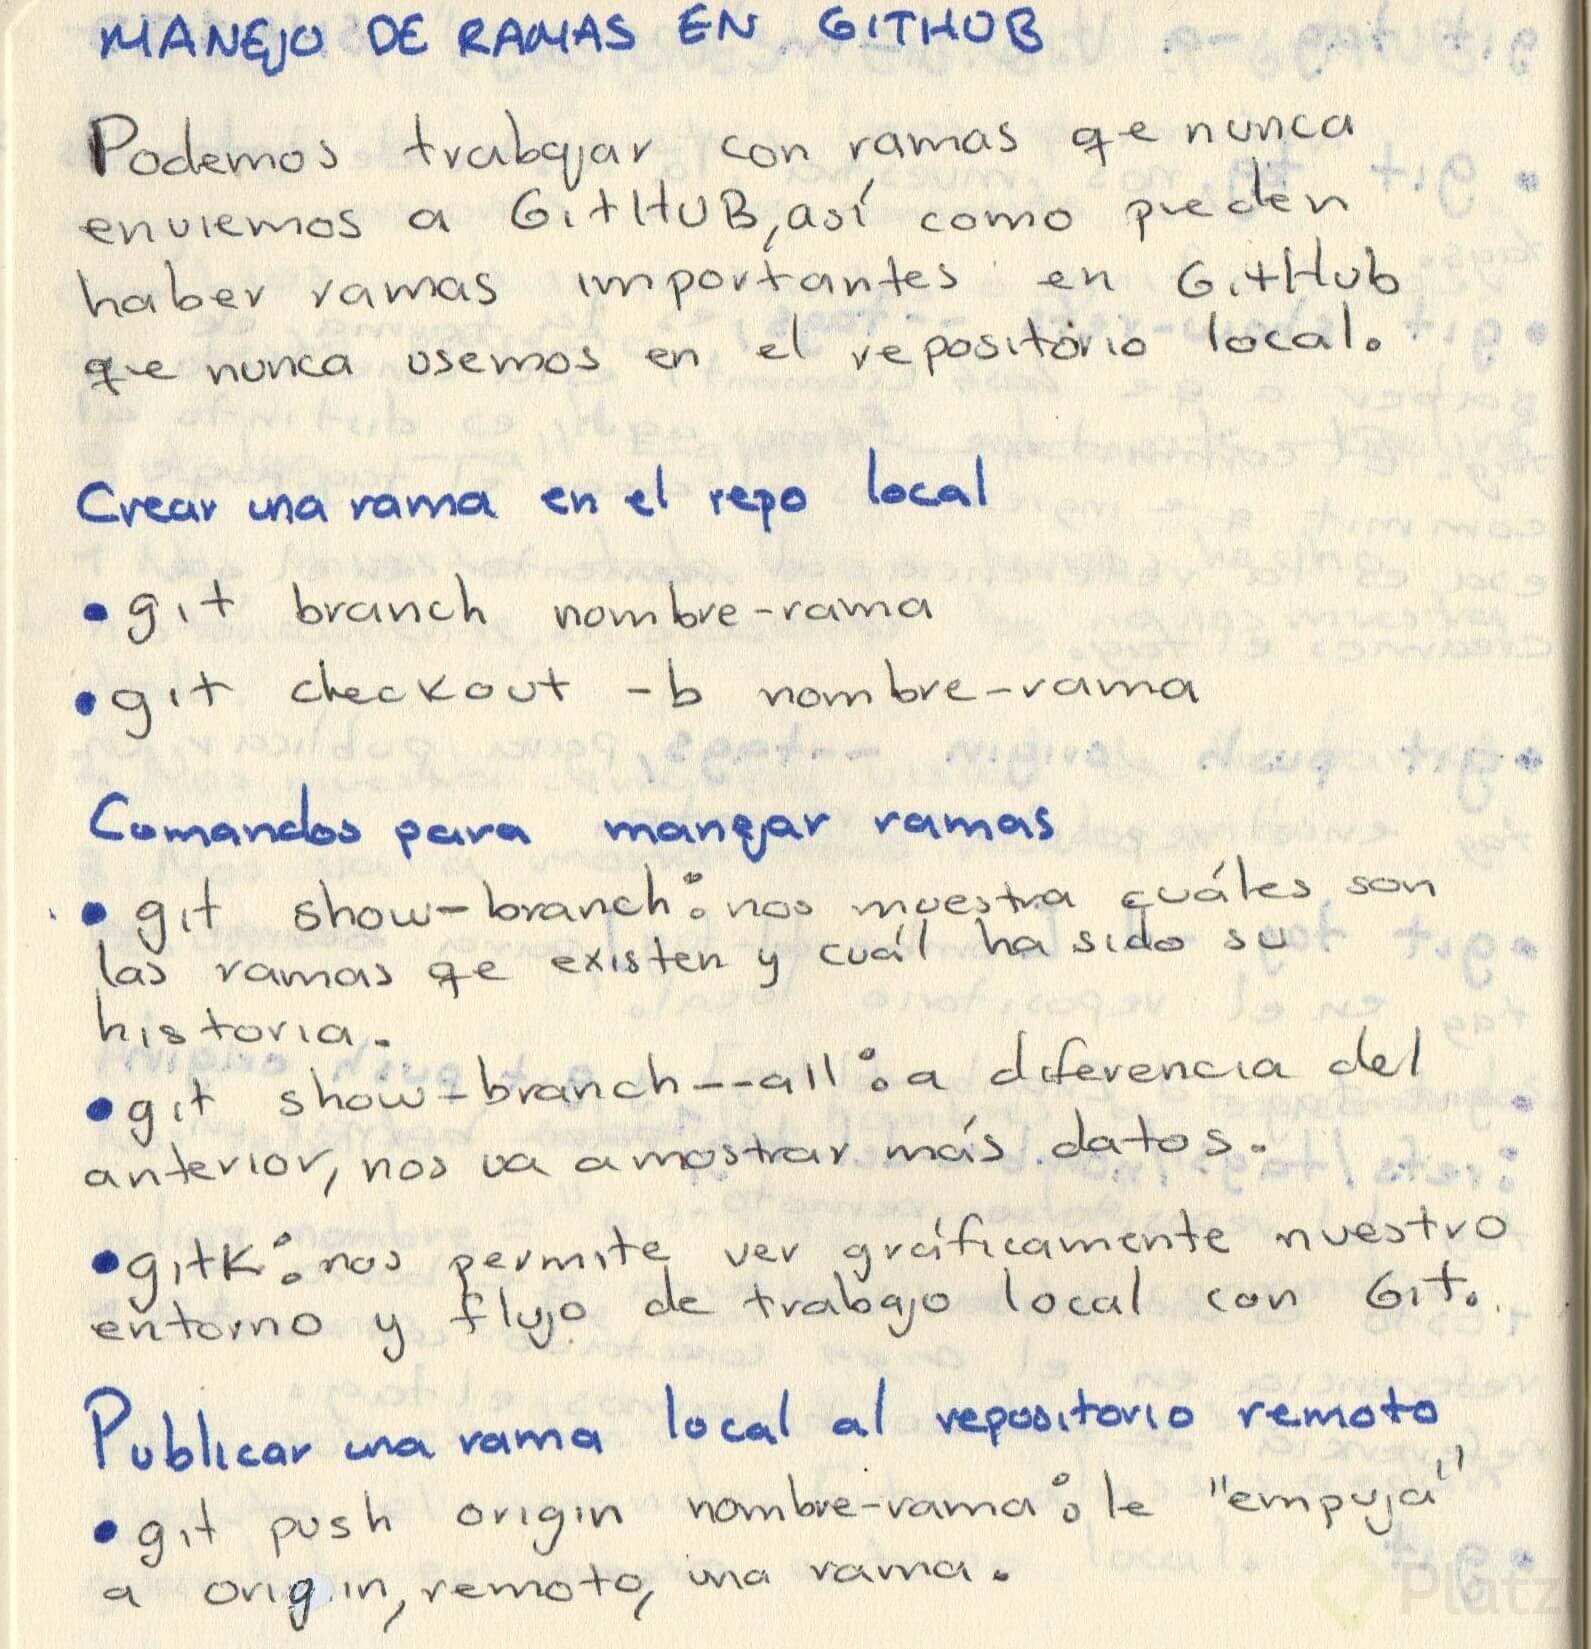 MANEJO DE RAMAS EN GITHUB
Podemos trabajar con ramas qe nunca
enviemos a GitHUB, así como pueden
haber ramas importantes en GitHub
que nunca usemos en el repositório local.
Crear una rama en el repo local
• git branch nombre-rama
• git checkout -b nombre-rama
Comandos para manejar ramas
• git show-branch: nos muestra cuáles son
las ramas qe existen y cuál ha sido su
historia.
• git show-branch--all: a diferencia del
anterior, nos va a mostrar más datos.
• gitK: nos permite ver gráficamente nuestro
entorno y flujo de trabajo local con Git.
Publicar una rama local al repositorio remoto
• git push origin nombre-rama: le "empuja"
a origin, remoto, una rama.
Platzi